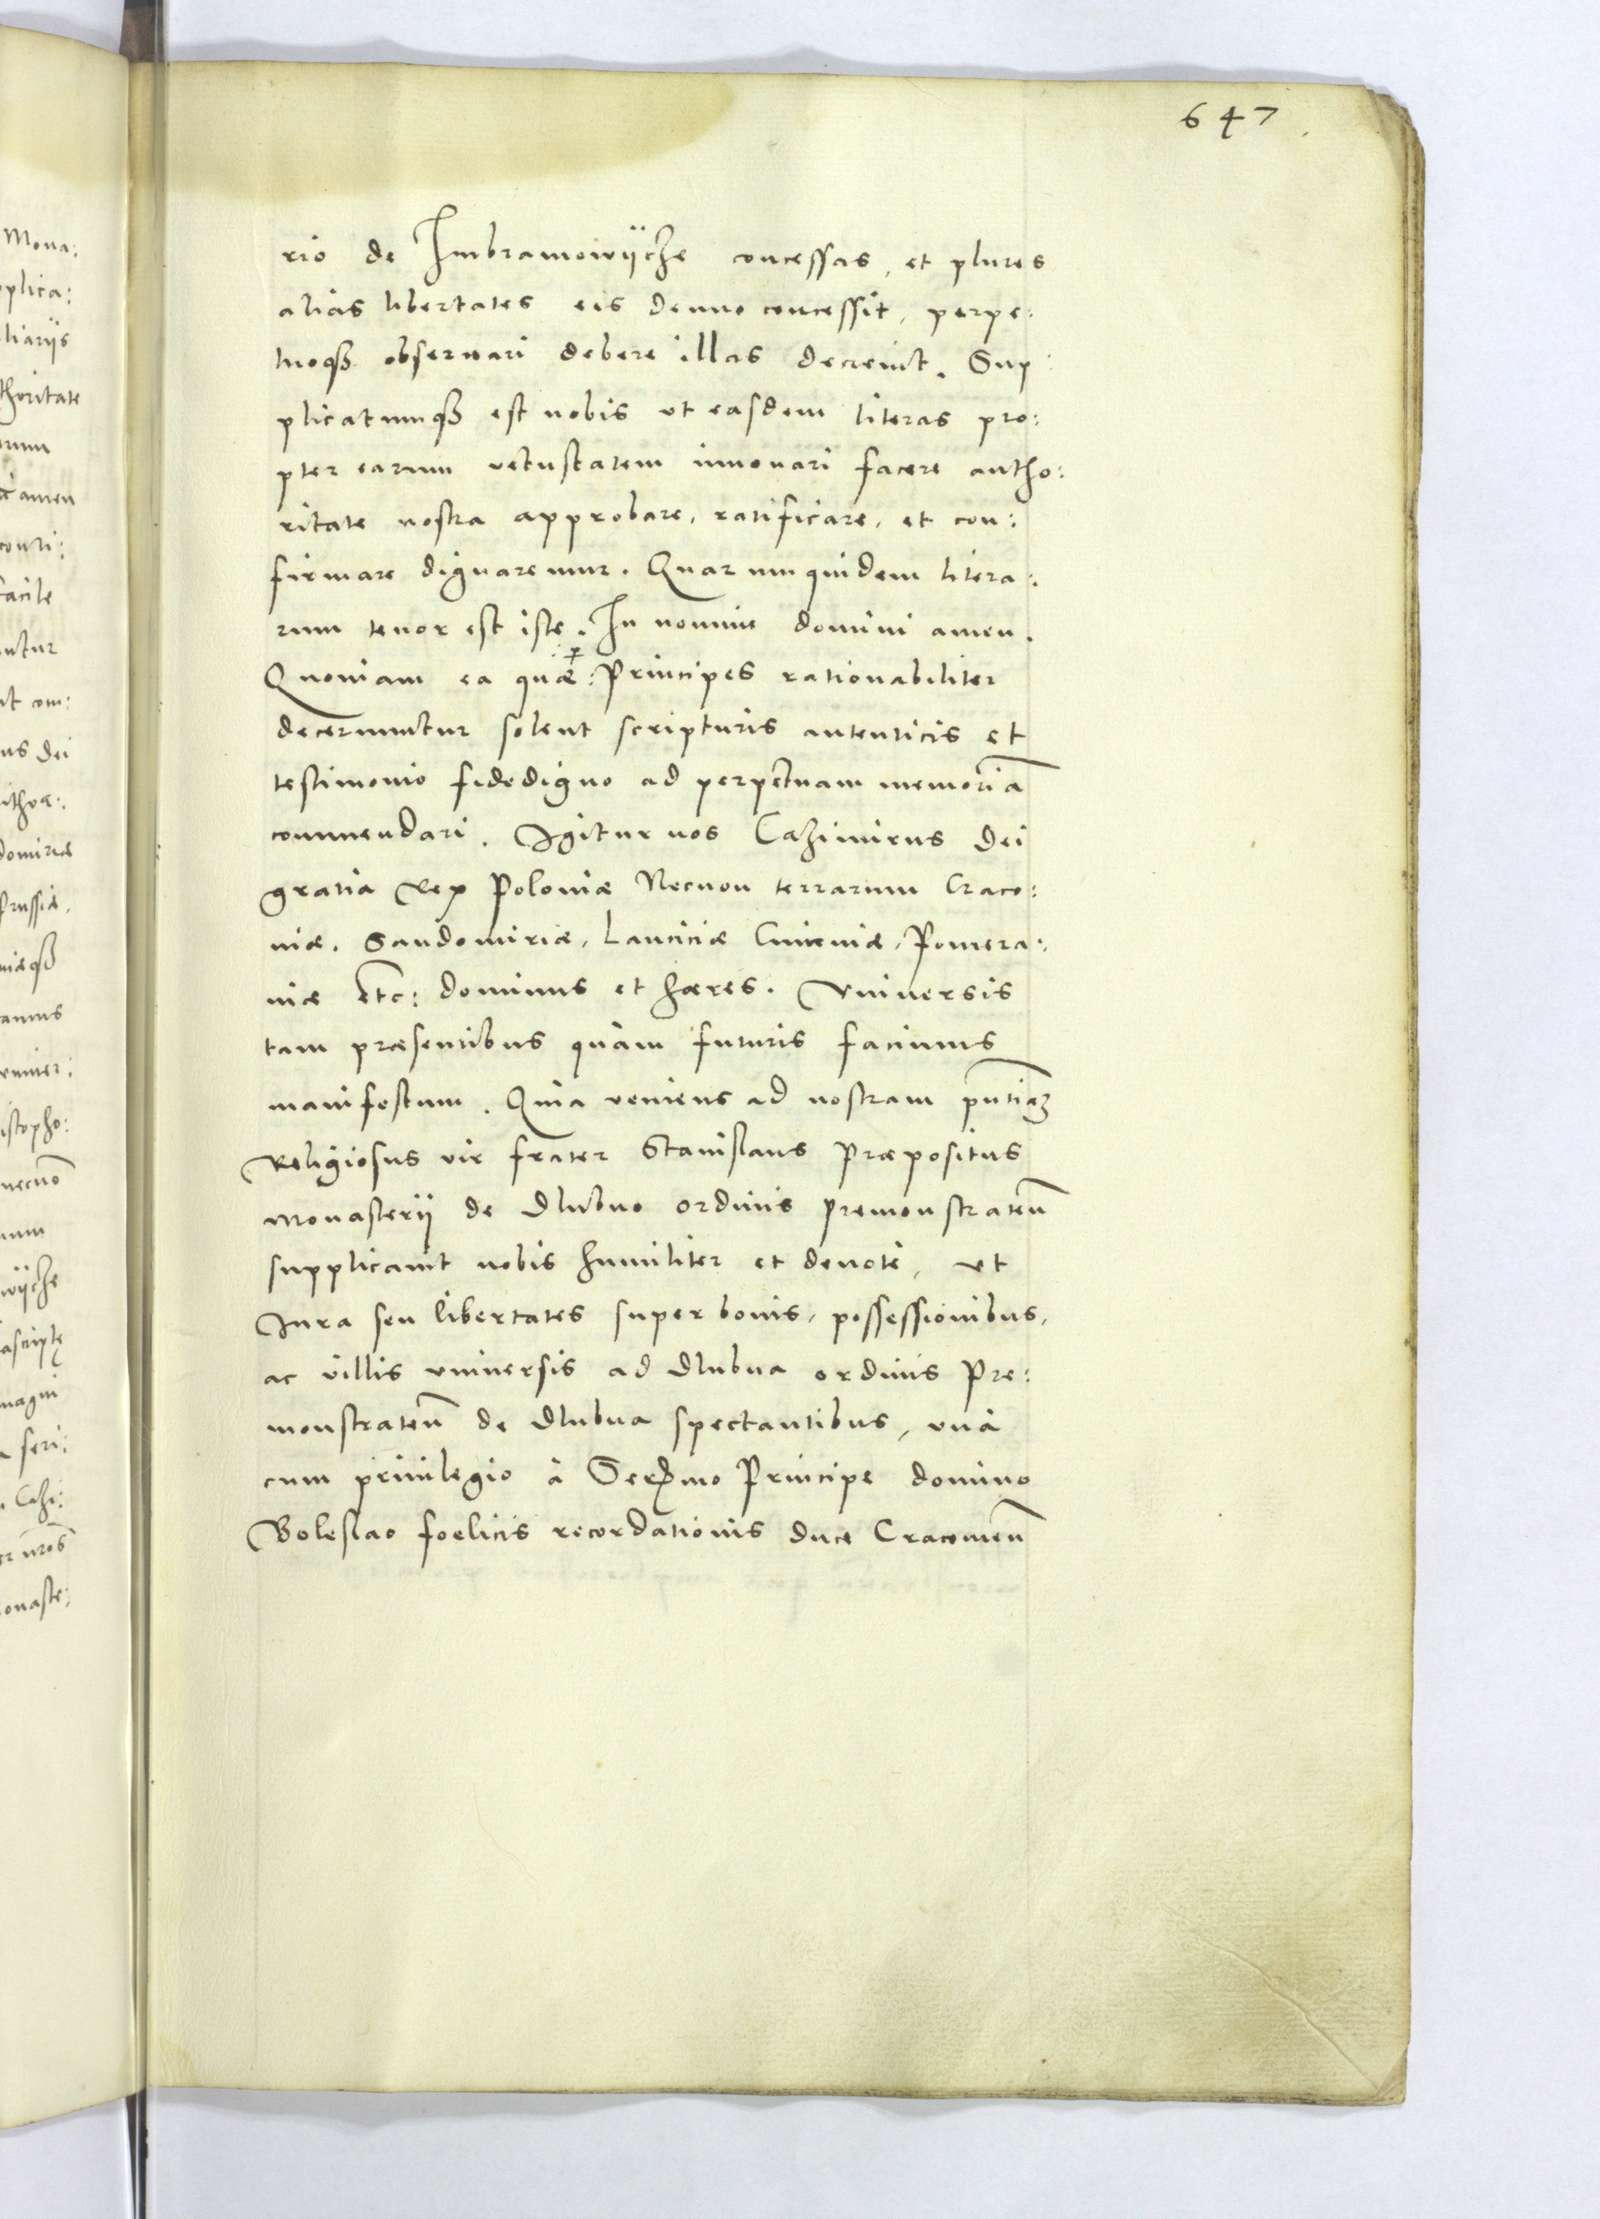 647
rio de Imbramowÿche concessas, et plures
alias libertates eis denuo concessit, perpe:
tuoqȝ obseruari debere illas decreuit. Sup
plicatumqȝ est nobis vt easdem literas pro:
pter earum vetustatem innouari facere autho:
ritate nostra approbare, ratificare, et con:
firmare dignaremur. Quarum quidem litera:
rum tenor est iste. In nomine domini amen.
Quoniam ea quæ ꝑ Principes rationabiliter
decernuntur solent scripturis autenticis et
testimonio fidedigno ad perpetuam memoriā
commendari. Igitur nos Cazimirus Dei
gratia Rex Poloniæ Necnon terrarum Craco:
uiæ. Sandomiriæ, Lanciciæ Cuiauiæ, Pomera:
niæ etc: dominus et hæres. Vniuersis
tam præsentibus quàm futuris facimus
manifestum. Quia veniens ad nostram pn̄tiaȝ
Religiosus vir frater Stanislaus Præpositus
Monasterÿ de Dlubno ordinis premonstrateñ
supplicauit nobis humiliter et deuotè, vt
Iura seu libertates super bonis, possessionibus,
ac villis vniuersis ad Dlubna ordinis Pre:
monstrateñ de Dlubna spectantibus, vnà
cum priuilegio à Serꝫmo Principe domino
Boleslao foelicis recordationis duce Cracouieñ
Mona:
pplica:
liarÿs
thoritate
amen
conti:
facile
untur
nt com:
us dei
domiriæ
Prussiæ,
niæqȝ
vniuer:
istopho:
necnō
wÿche
magni
seri:
Cazi:
onaste: